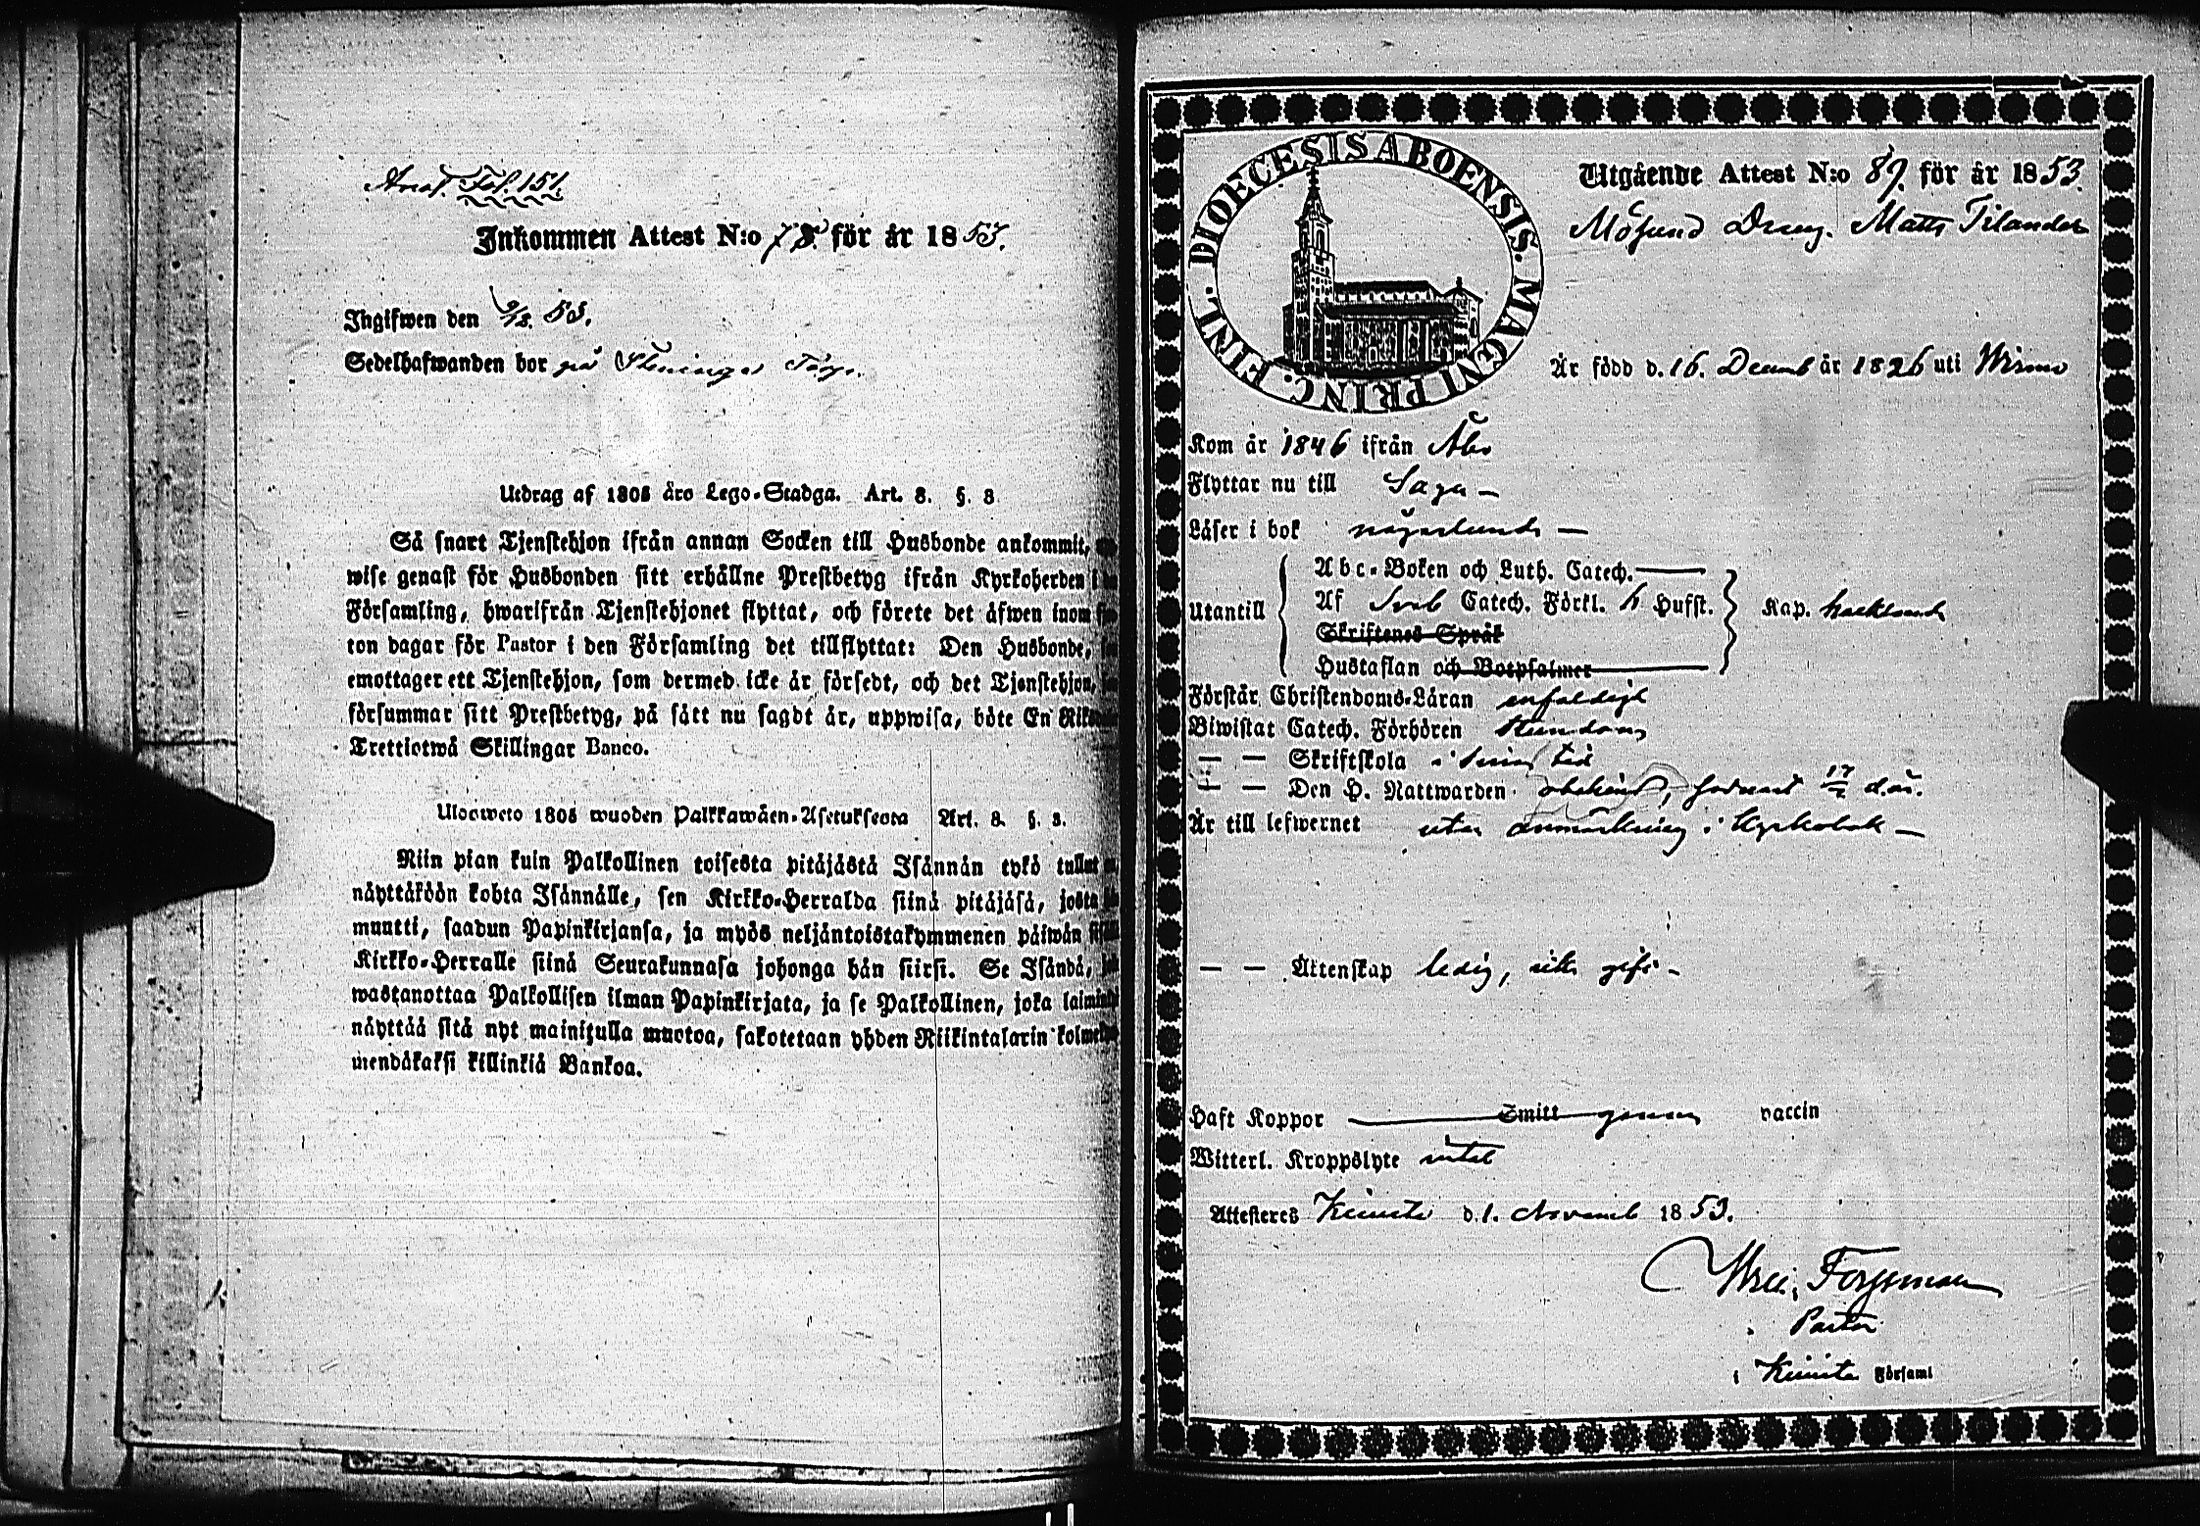 Anot. Fol. 151.
Inkommen Attest N:o 78. för år 1853.
Ingifwen den 9/12. 53.
Sedelhafwanden bor på
Utdrag af 1805 års Lego-Stadga. Art. 8. §. 3
Så snart Tjenstehjon ifrån annan Socken till Husbonde ankommit,
wise genast för Husbonden sitt erhållne Prestbetyg ifrån Kyrkoherden i
Församling, hwarifrån Tjenstehjonet flyttat, och förete det äfwen inom
ton dagar för Pastor i den Församling det tillflyttat: Den Husbonde,
emottager ett Tjenstehjon, som dermed icke är försedt, och det Tjenstehjon,
försummar sitt Prestbetyg, på sätt nu sagdt är, uppwisa, böte En
Trettiotwå Skillingar Banco.
Ulosweto 1805 wuoden Palkkawäen-Asetuksesta Art. 8. §. 3.
Niin pian kuin Palkollinen toisesta pitäjästä Isännän tykö tullut
näyttäköön kohta Isännälle, sen Kirkko-Herralda siinä pitäjäsä, josta
muutti, saadun Papinkirjansa, ja myös neljäntoistakymmenen päiwän
Kirkko-Herralle siinä Seurakunnasa johonga hän siirsi. Se Isändä,
wastanottaa Palkollisen ilman Papinkirjata, ja se Palkollinen, joka
näyttää sitä nyt mainitulla muotoa, sakotetaan yhden Riikintalarin
mendäkaksi killinkiä Bankoa.
DIOECESIS ABOENSIS. MAGNI PRINC. FINL.
Utgående Attest N:o 89. för år 1853.
Drng. Matts Tilander
Är född d. 16. Decemb år 1826 uti Wirmo
Kom år 1846 ifrån Åbo
Flyttar nu till Sagu –
Läser i bok någorlunda –
Utantill
Abc-Boken och Luth. Catech.
Af Sveb Catech. Förkl. h. Hufst.
Skriftenes Språk
Hustaflan och Botpsalmer
Kap. hackland
Förstår Christendoms-Läran enfaldigt
Biwistat Catech. Förhören stundom
— — Skriftskola i sin tid
— — Den H. Nattwarden obehind, d.å.
Är till lefwernet utan anmärkning i Kyrkobok –
— — Äktenskap ledig, gift –
Haft Koppor Smitt genom vaccin
Witterl. Kroppslyte intet
Attesteras Kimito d. 1. Novemb 1853.
Pastor
i Kimito Församl